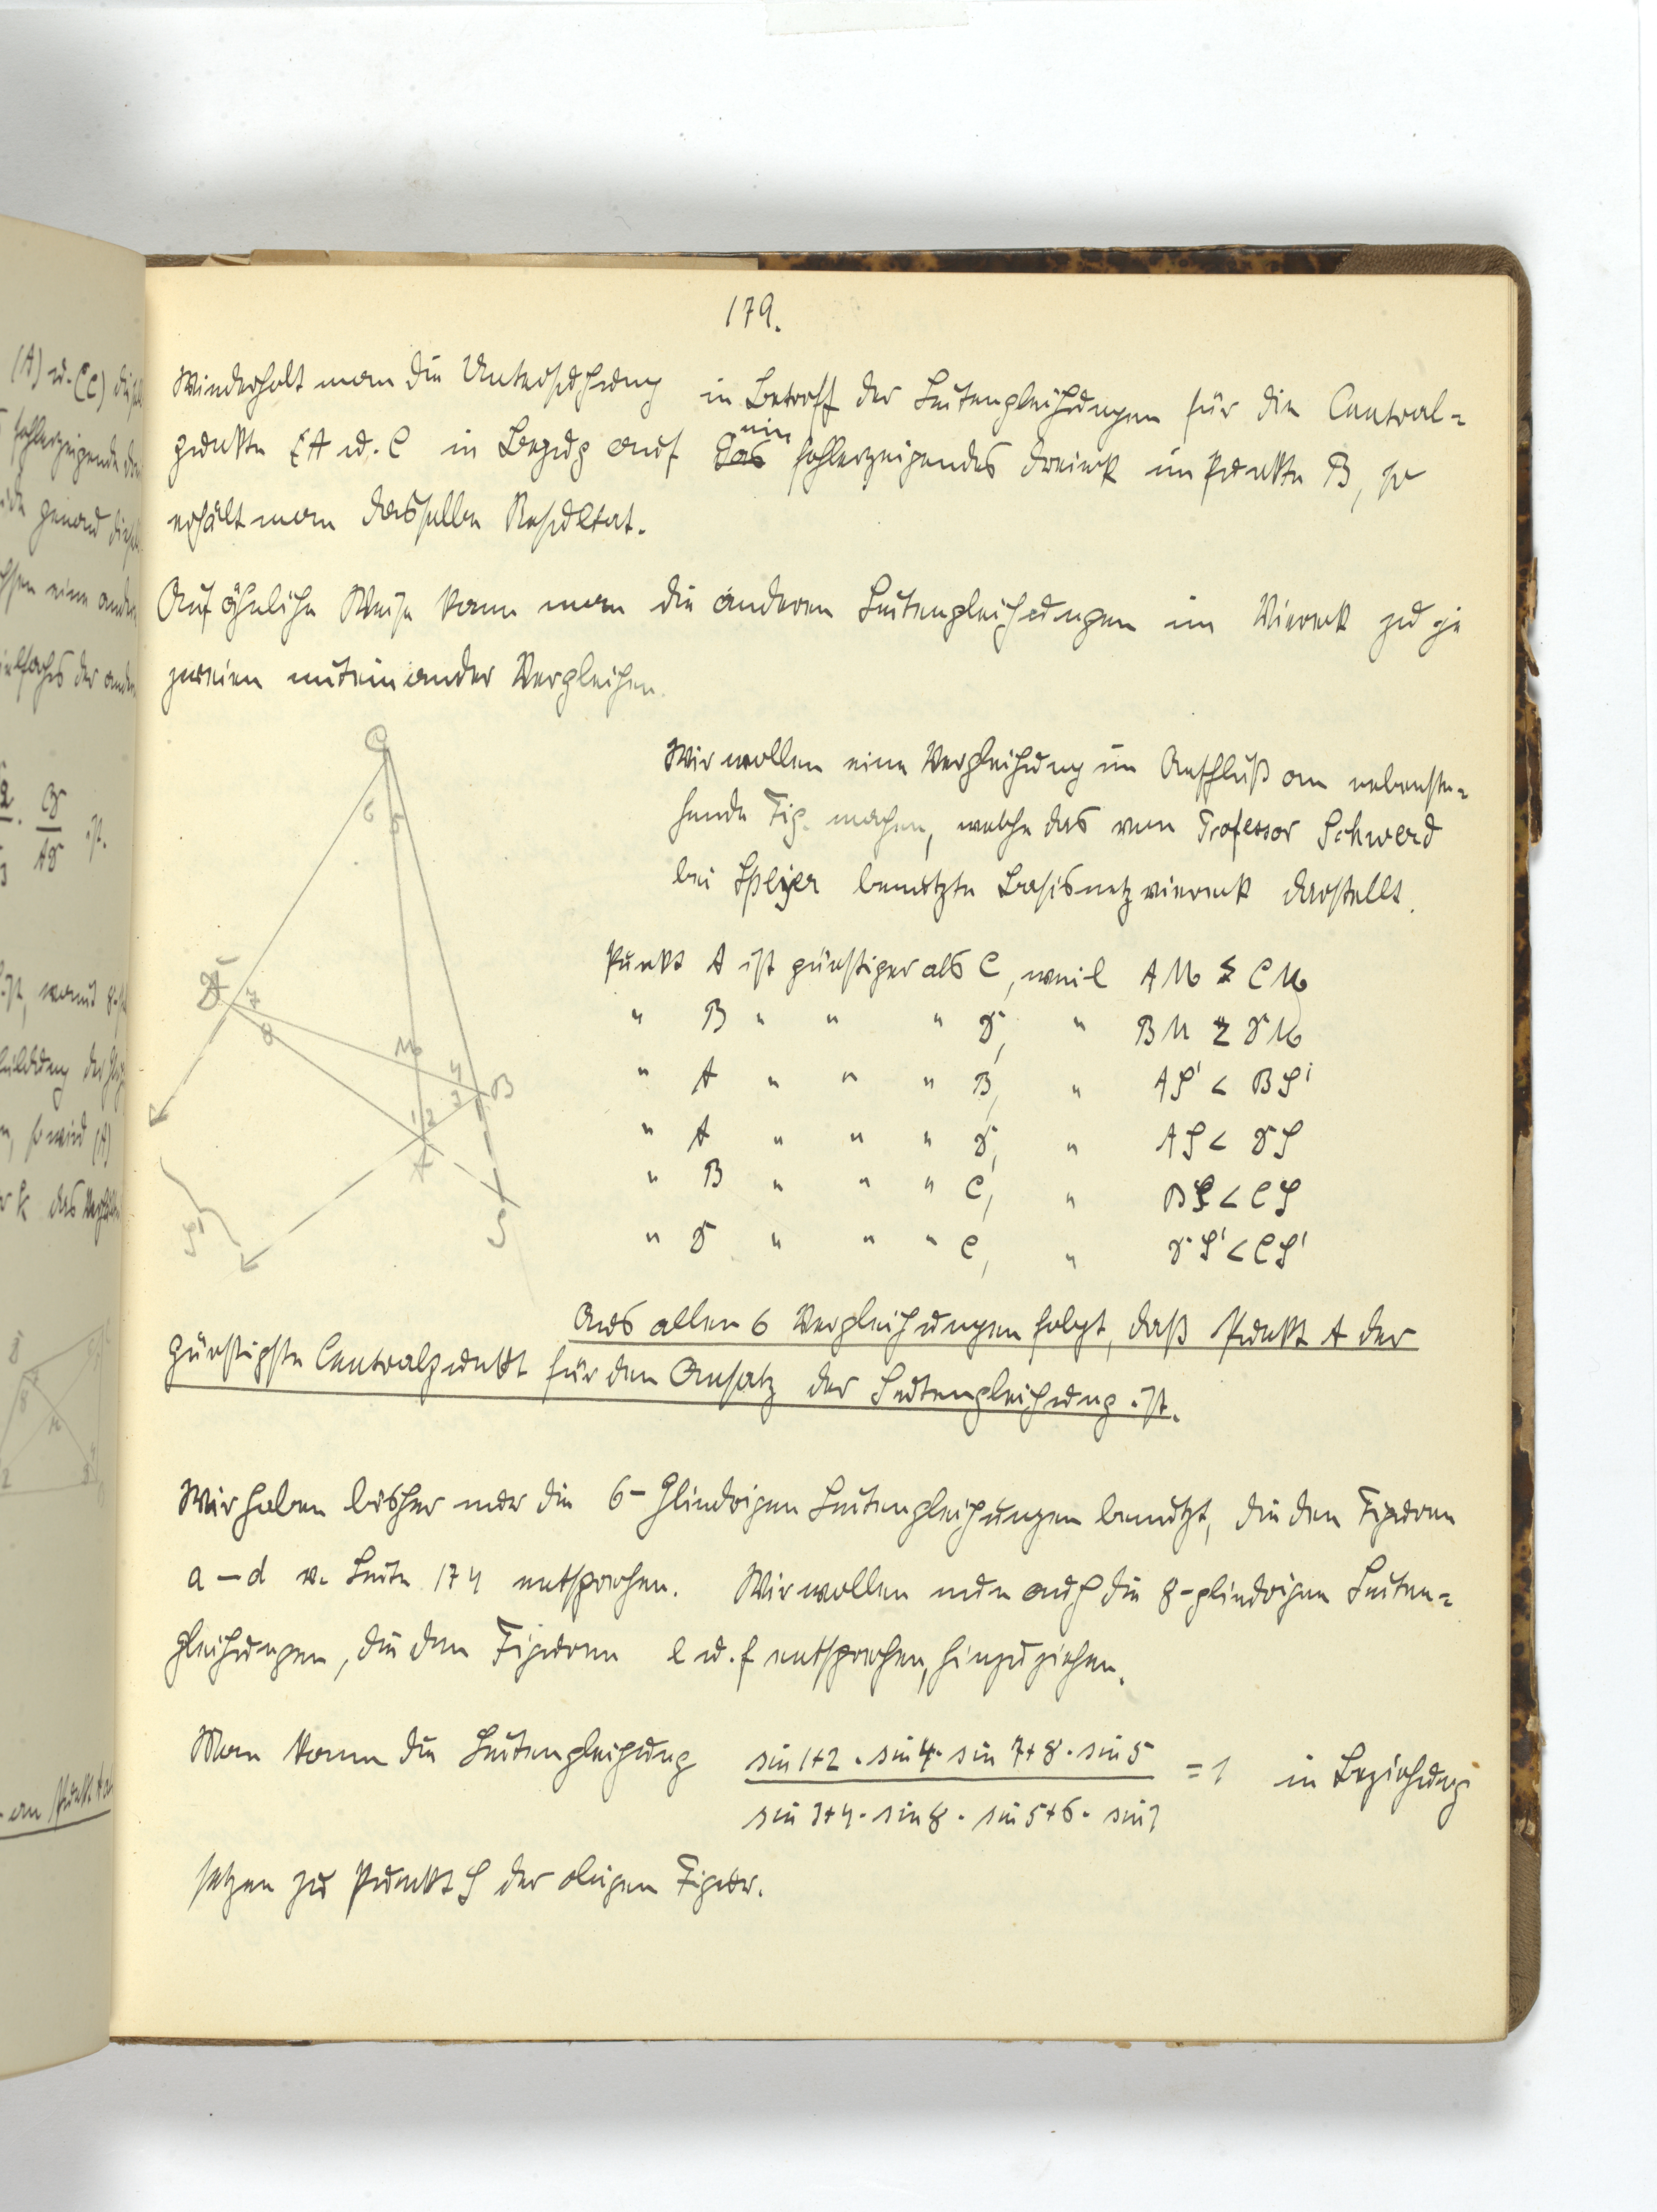 179.
Wiederholt man die Untersuchung in Betreff der Seitengleichungen für die Central=
punkte A u. C in Bezug auf ein fehlerzeigendes Dreieck im Punkte B, so
erhält man dasselbe Resultat.
Auf ähnliche Weise kann man die anderen Seitengleichungen im Viereck zu je
zweien miteinander Vergleichen.
Wir wollen eine Vergleichung im Anschluß an nebenste=
hende Fig. machen, welche das vom Professor Schwerd
bei Speyer benutzte Basisnetzviereck darstellt.
C
6 5
7
8
M
4
3
B
1 2
A
S
S'
Punkt A ist günstiger als C, weil AM < CM
" B " " " D, " BM < DM
" A " " " B, " AS' < BS'
" A " " " D, " AS < DS
" B " " " C, " BS < CS
" D " " " C, " DS' < CS'
Aus allen 6 Vergleichungen folgt, daß Punkt A der
günstigste Centralpunkt für den Ansatz der Seitengleichung ist.
Wir haben bisher nur die 6-gliedrigen Seitengleichungen benutzt, die den Figuren
a – d v. Seite 174 entsprechen. Wir wollen nun auch die 8-gliedrigen Seiten=
gleichungen, die den Figuren e u. f entsprechen, hinzuziehen.
Man kann die Seitengleichung sin 1+2 . sin 4 . sin 7+8 . sin 5 = 1 in Beziehung
sin 3+4 . sin 8 . sin 5+6 . sin 1
setzen zu Punkt S der obigen Figur.